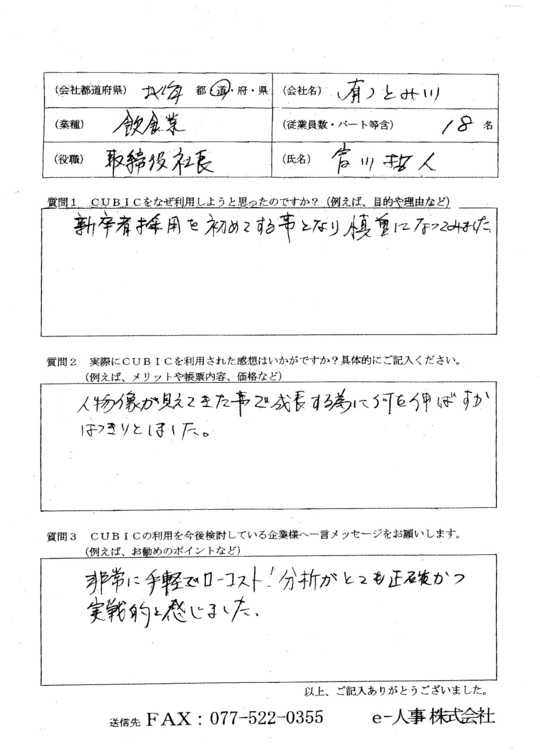 (会社都道府県) 北海 都・道・府・県 (会社名) (有)とみ川
(業種) 飲食業 (従業員数・パート等含) 18 名
(役職) 取締役社長 (氏名) 富川哲人
質問1 CUBICをなぜ利用しようと思ったのですか?(例えば、目的や理由など)
新卒者採用を初めてする事となり慎重になってみました
質問2 実際にCUBICを利用された感想はいかがですか?具体的にご記入ください。
(例えば、メリットや帳票内容、価格など)
人物像が見えてきた事で成長する為に何を伸ばすか
はっきりとしました。
質問3 CUBICの利用を今後検討している企業様へ一言メッセージをお願いします。
(例えば、お勧めのポイントなど)
非常に手軽でローコスト!分析がとても正確かつ
実戦的と感じました。
以上、ご記入ありがとうございました。
送信先 FAX:077-522-0355 e-人事株式会社